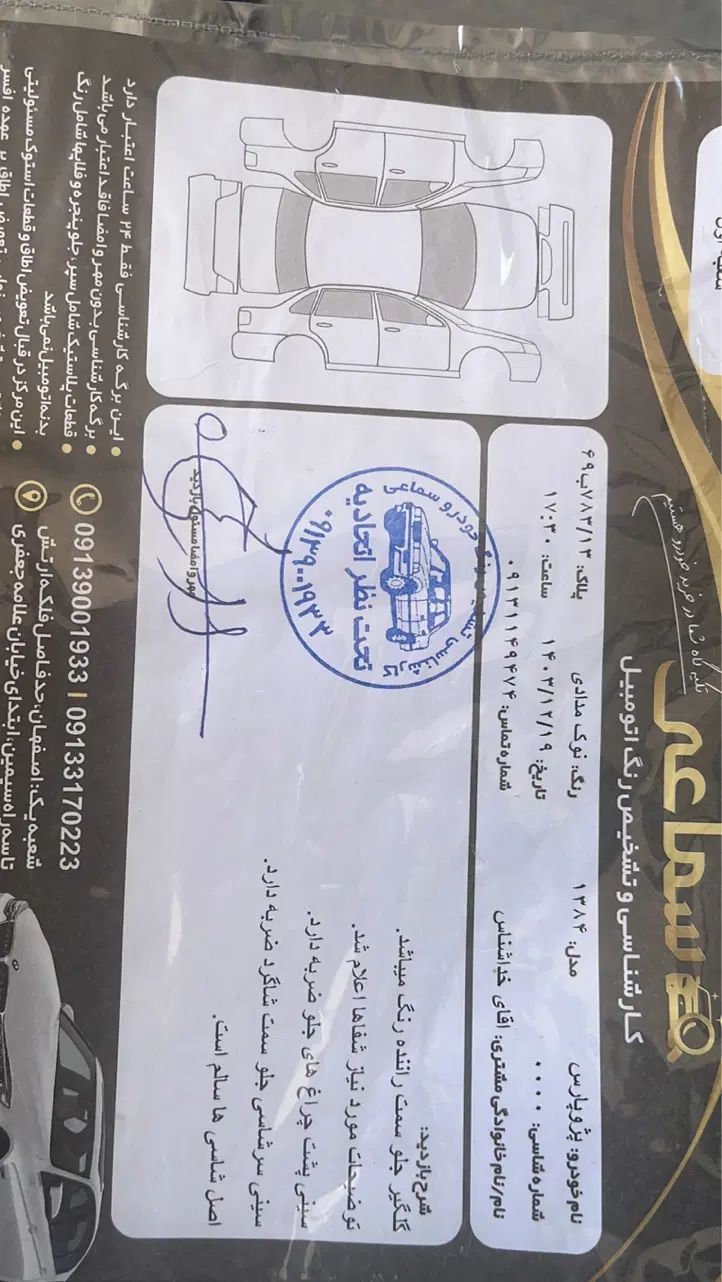 تکیه گاه شما در خرید خودرو هستیم
سماعی
کارشناسی و تشخیص رنگ اتومبیل
نام خودرو: پژو پارس
مدل: ۱۳۸۴
رنگ: نوک مدادی
پلاک: ۶۹ب۷۸۳/۱۳
شماره شاسی: ۰۰۰۰
تاریخ: ۱۴۰۳/۱۲/۱۹
ساعت: ۱۷:۳۰
نام/نام خانوادگی مشتری: اقای خداشناس
شماره تماس: ۰۹۱۳۱۱۴۹۴۷۴
شرح بازدید:
گلگیر جلو سمت راننده رنگ میباشد.
توضیحات مورد نیاز شفاها اعلام شد.
سینی پشت چراغ های جلو ضربه دارد.
سینی سرشاسی جلو سمت شاگرد ضربه دارد.
اصل شاسی ها سالم است.
خودرو سماعی
تحت نظر اتحادیه
۰۹۱۳۹۰۰۱۹۳۳
مهر و امضا مسئول بازدید
این برگه کارشناسی فقط ۲۴ ساعت اعتبار دارد
برگه کارشناسی بدون مهر و امضا فاقد اعتبار می باشد
قطعات پلاستیک شامل سپر، جلو پنجره و قالپا شامل رنگ
بدنه اتومبیل نمی باشد
این مرکز در قبال تعویض اطاق و قطعات استوک مسئولیتی
09139001933 | 09133170223
شعبه یک: اصفهان، حدفاصل فلکه ارتش
تا سه راه سیمین، ابتدای خیابان علامه جعفری